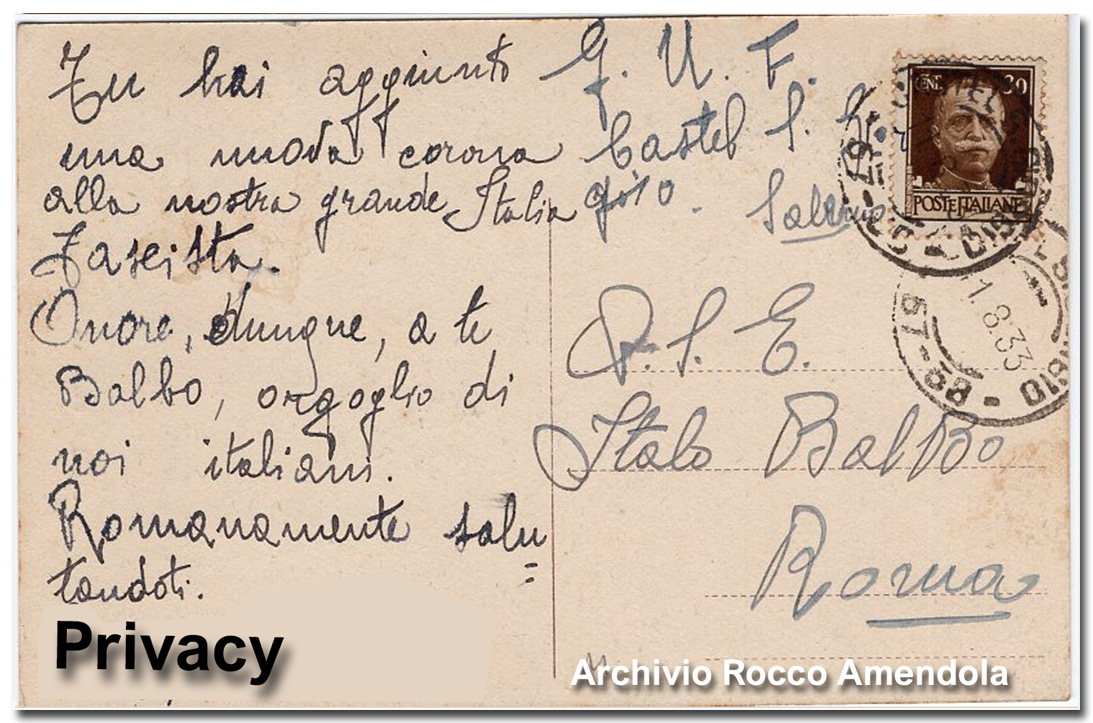 Tu hai aggiunto
una nuova corona
alla nostra grande Italia
Fascista.
Onore, dunque, a te
Balbo, orgoglio di
noi italiani.
Romanamente salu
tandoti.
Privacy
G. U. F.
Castel S. Gior
gio.
Salerno
CENT. 30
POSTE ITALIANE
1.8.33
57-88
S. E.
Italo Balbo
Roma
Archivio Rocco Amendola